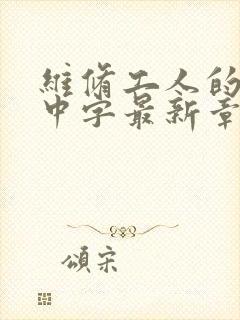 維脩工人的
中字最新章
頌宋